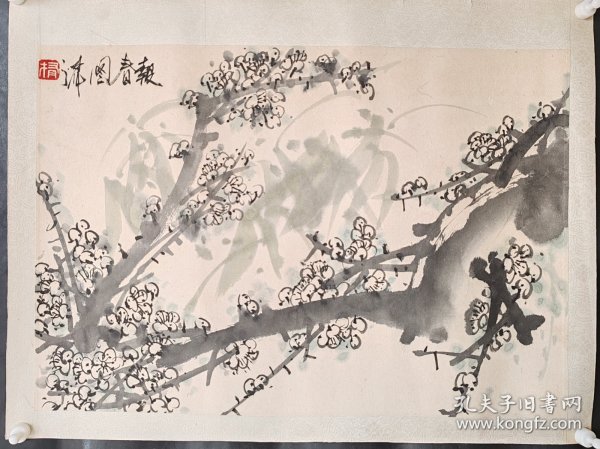 報春圖
孔夫子旧书网
www.kongfz.com